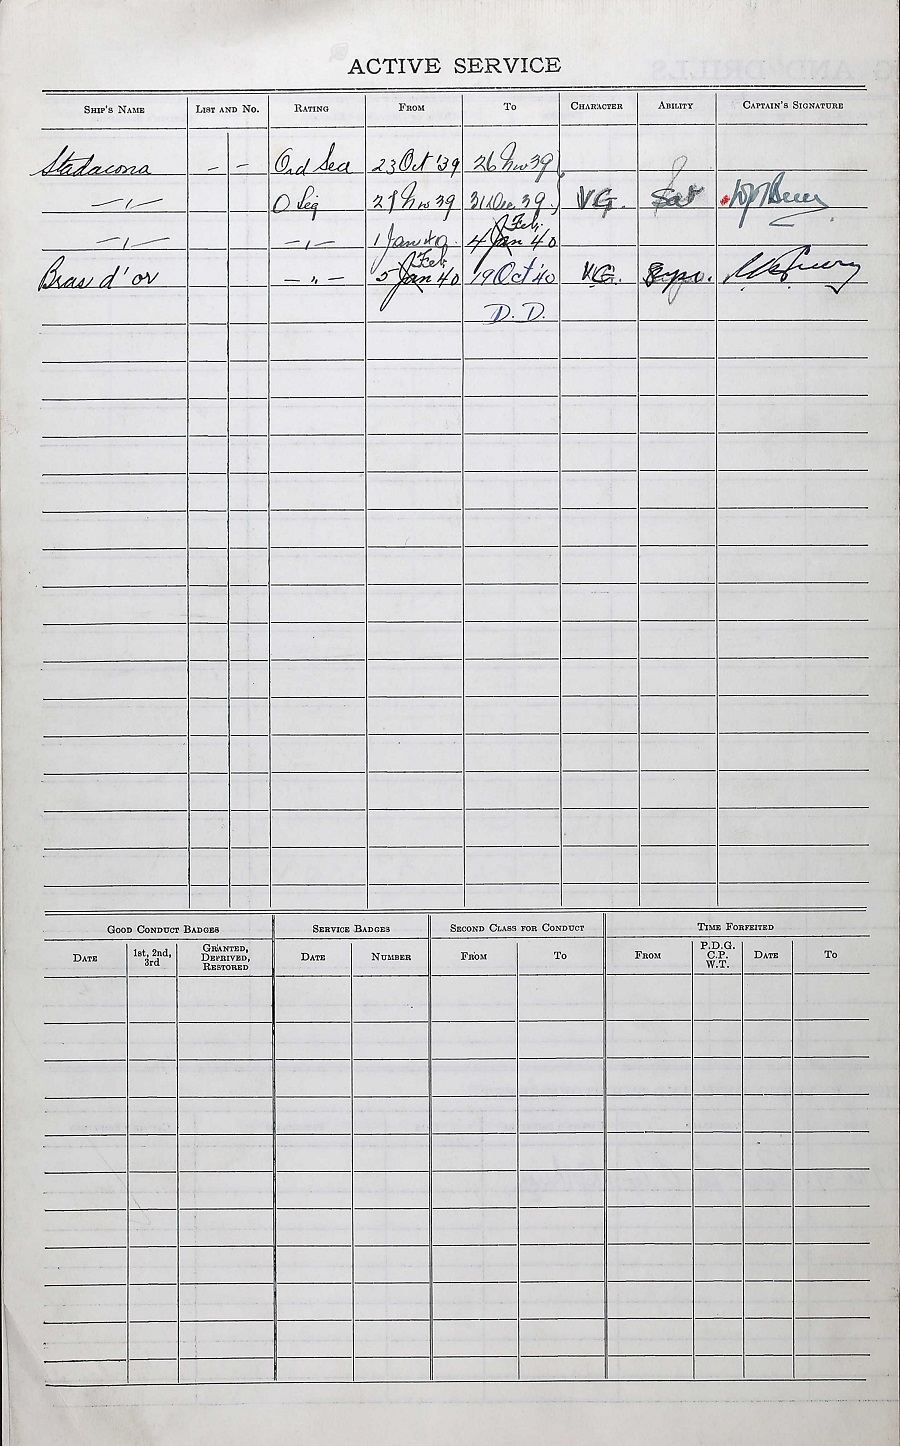 ACTIVE SERVICE
SHIP'S NAME LIST AND NO. RATING FROM TO CHARACTER ABILITY CAPTAIN'S SIGNATURE
Stadacona - - Ord Sea 23 Oct '39 26 Nov 39
-"- O Sig 27 Nov 39 31 Dec 39. VG. Sat
Feb.
-"- -"- 1 Jan 40. 4 Jan 40
Feb.
Bras d'or -"- 5 Jan 40 19 Oct '40 VG.
D.D.
GOOD CONDUCT BADGES SERVICE BADGES SECOND CLASS FOR CONDUCT TIME FORFEITED
DATE 1st, 2nd, 3rd GRANTED, DEPRIVED, RESTORED DATE NUMBER FROM TO FROM P.D.G. C.P. W.T. DATE TO